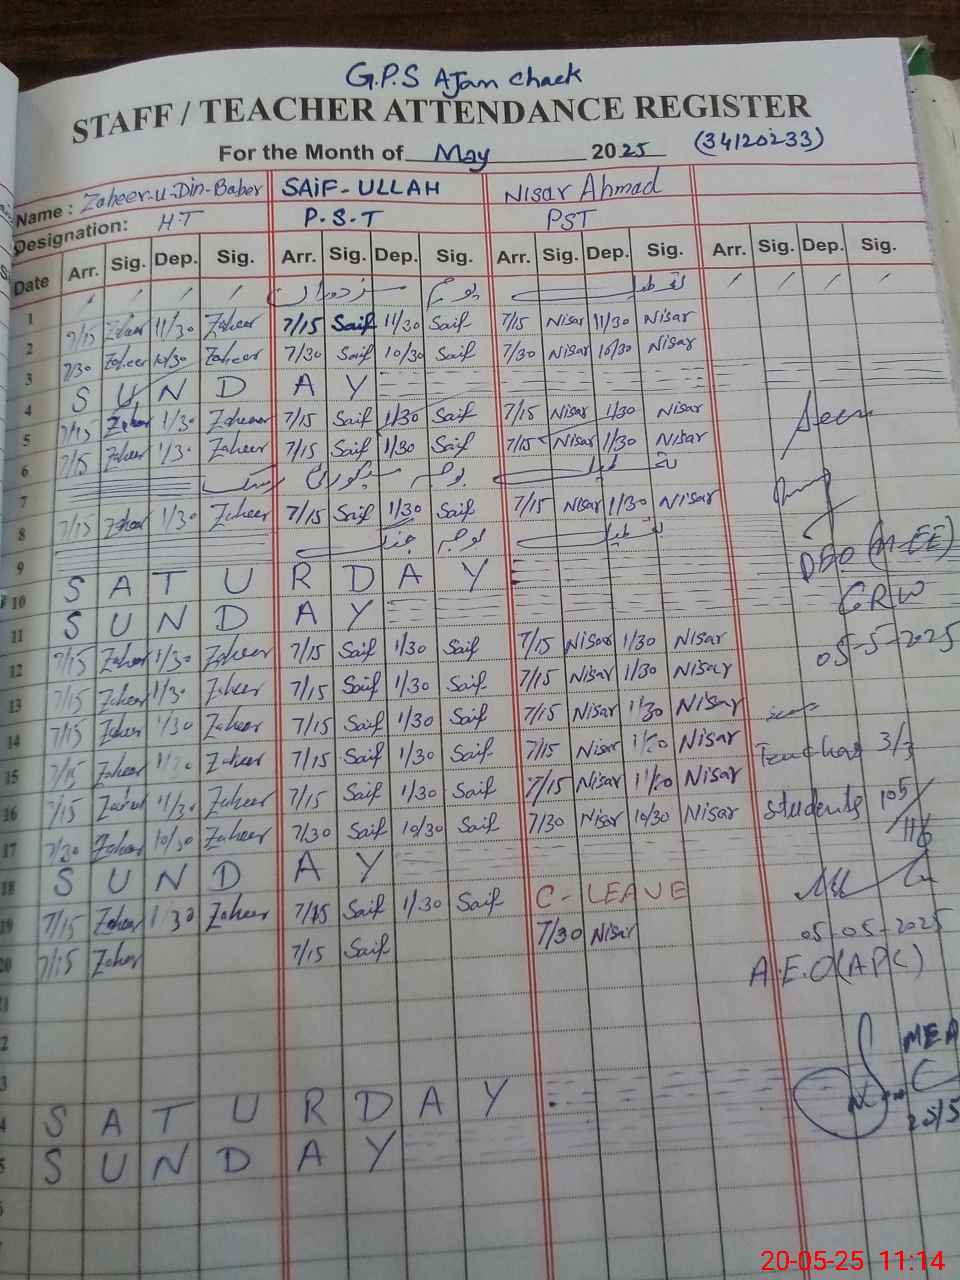 G.P.S AJam Chack
STAFF / TEACHER ATTENDANCE REGISTER
For the Month of May 2025 (34120233)
Name : Zaheer-u-Din-Baber SAiF-ULLAH Nisar Ahmad
Designation: H.T P.S.T PST
Date Arr. Sig. Dep. Sig. Arr. Sig. Dep. Sig. Arr. Sig. Dep. Sig. Arr. Sig. Dep. Sig.
1 یوم تعطیل
2 7/15 Zaheer 11/30 Zaheer 7/15 Saif 11/30 Saif 7/15 Nisar 11/30 Nisar
3 7/30 Zaheer 10/30 Zaheer 7/30 Saif 10/30 Saif 7/30 Nisar 10/30 Nisar
4 S U N D A Y
5 7/15 Zaheer 1/30 Zaheer 7/15 Saif 1/30 Saif 7/15 Nisar 1/30 Nisar
6 7/15 Zaheer 1/30 Zaheer 7/15 Saif 1/30 Saif 7/15 Nisar 1/30 Nisar
7 بوجہ سیکورٹی رسک تعطیل
8 7/15 Zaheer 1/30 Zaheer 7/15 Saif 1/30 Saif 7/15 Nisar 1/30 Nisar
9 بوجہ جنگ تعطیل
10 S A T U R D A Y
11 S U N D A Y
12 7/15 Zaheer 1/30 Zaheer 7/15 Saif 1/30 Saif 7/15 Nisar 1/30 Nisar
13 7/15 Zaheer 1/30 Zaheer 7/15 Saif 1/30 Saif 7/15 Nisar 1/30 Nisar
14 7/15 Zaheer 1/30 Zaheer 7/15 Saif 1/30 Saif 7/15 Nisar 1/30 Nisar
15 7/15 Zaheer Zaheer 7/15 Saif 1/30 Saif 7/15 Nisar Nisar
16 7/15 Zaheer 11/30 Zaheer 7/15 Saif 1/30 Saif 7/15 Nisar Nisar
17 7/30 Zaheer 10/30 Zaheer 7/30 Saif 10/30 Saif 7/30 Nisar 10/30 Nisar
18 S U N D A Y
19 7/15 Zaheer 1/30 Zaheer 7/15 Saif 1/30 Saif C- LEAVE
20 7/15 Zaheer 7/15 Saif 7/30 Nisar
S A T U R D A Y
S U N D A Y
Seen
DEO (M-EE)
GRW
05-5-2025
Teachers 3/3
Students 105/116
05-05-2025
A.E.O(APC)
MEA
20/5
20-05-25 11:14